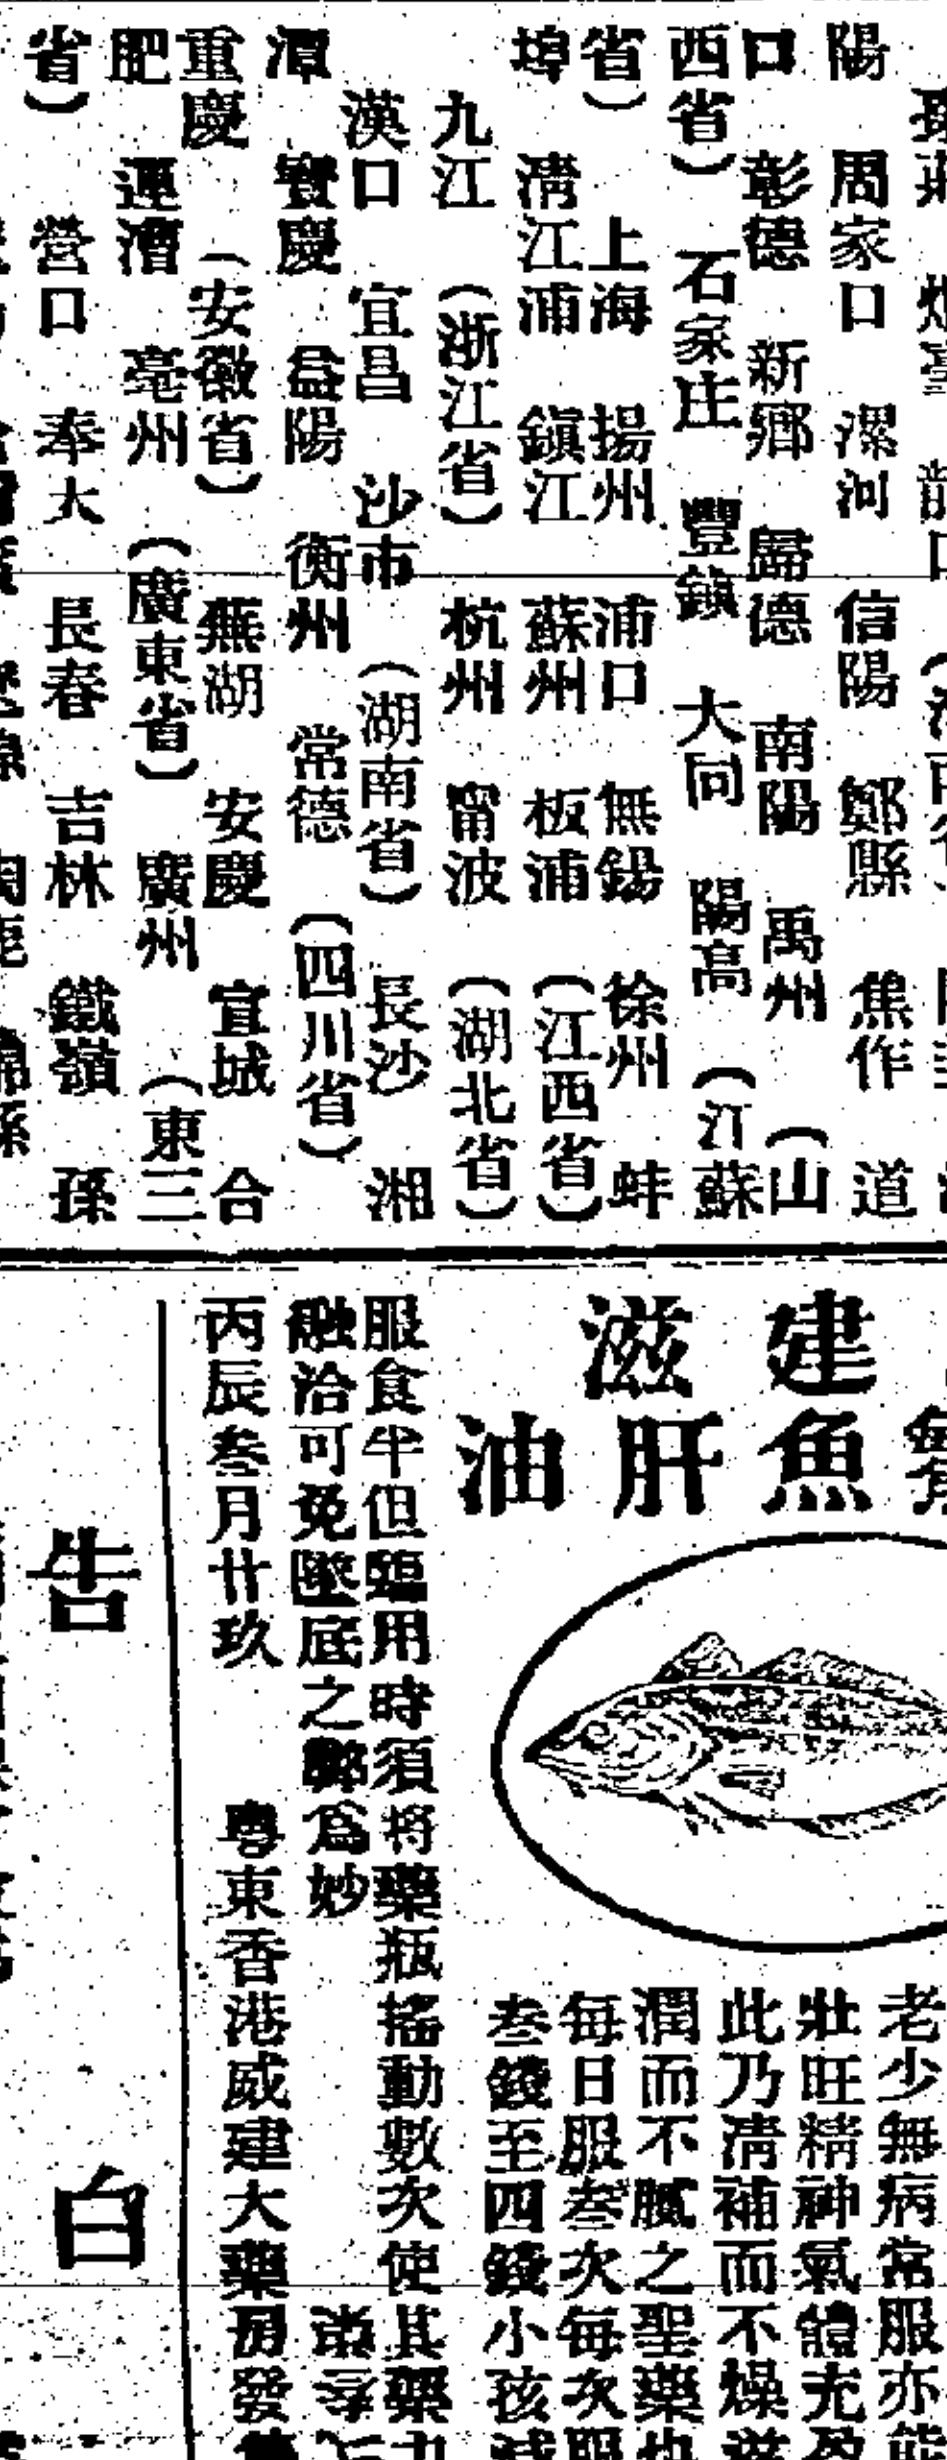 陽　周家口　漯河　信陽　鄭縣　焦作　道
口　彰德　新鄉　歸德　南陽　禹州　（山
西省）　石家庄　豐鎮　大同　陽高　（江蘇
省）　上海　揚州　浦口　無錫　徐州　蚌
埠　清江浦　鎮江　蘇州　板浦　（江西省）
九江　（浙江省）　杭州　甯波　（湖北省）
漢口　宜昌　沙市　（湖南省）　長沙　湘
潭　寶慶　益陽　衡州　常德　（四川省）
重慶　（安徽省）　蕪湖　安慶　宣城　合
肥　運漕　亳州　（廣東省）　廣州　（東三
省）　營口　奉大　長春　吉林　鐵嶺　孫
建滋
魚肝油
老少無病常服亦能
壯旺精神氣體充盈
此乃清補而不燥滋
潤而不膩之聖藥也
每日服叁次每次服
叁錢至四錢小孩減
服食半但臨用時須將藥瓶搖動數次使其藥力
融洽可免墜底之弊爲妙
丙辰叁月廿玖　粵東香港威建大藥房發
告白